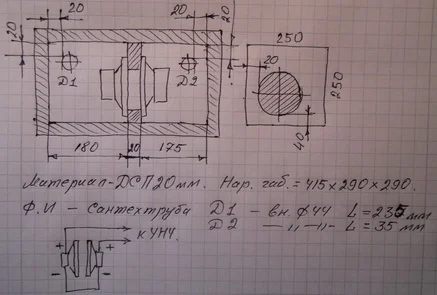 20
20
20
20
Д1
Д2
180
20
175
250
20
250
40
Материал - ДСП 20 мм. Нар. габ. = 415 x 290 x 290.
Ф.И - Сантехтруба Д1 - вн. ф44 L = 235 мм
Д2 - " - " - L = 35 мм
+
+
к УНЧ.
-
-